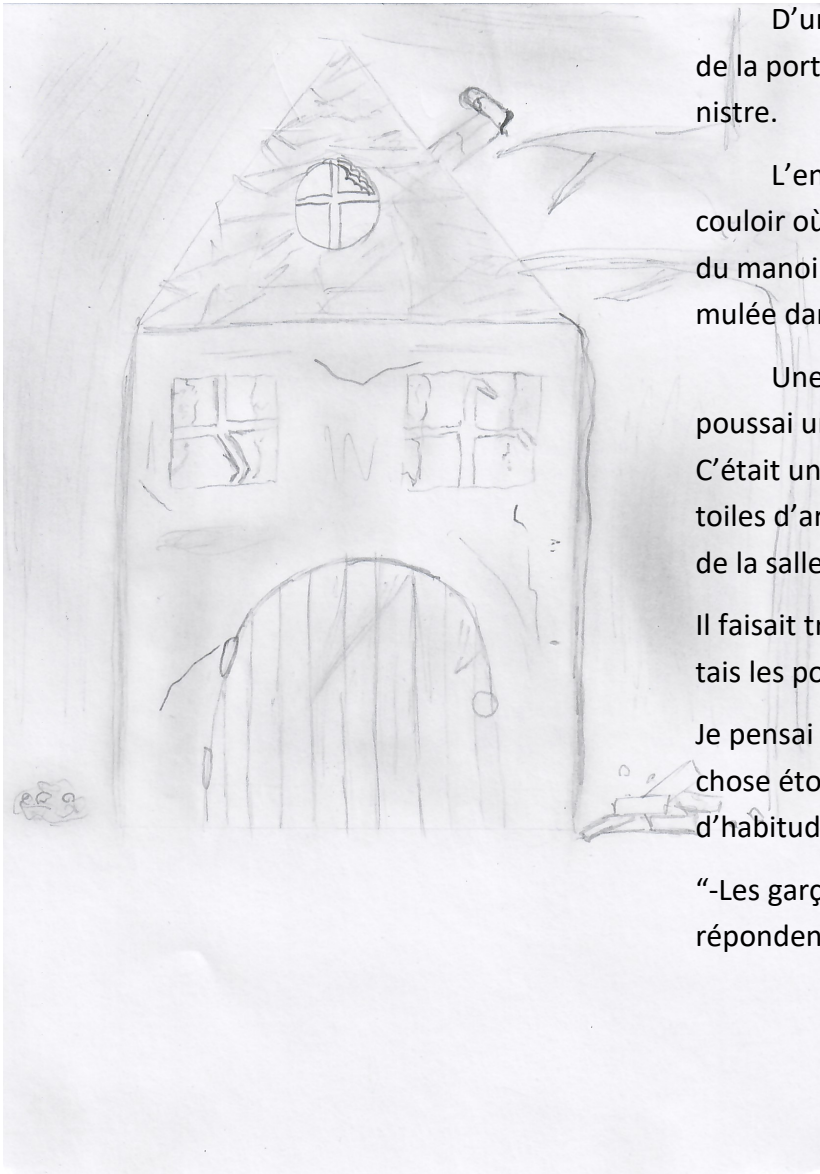 D’un
de la port
nistre.
L’en
couloir où
du manoi
mulée dan
Une
poussai un
C’était un
toiles d’ar
de la salle
Il faisait tr
tais les po
Je pensai
chose éto
d’habitud
“-Les garç
réponden